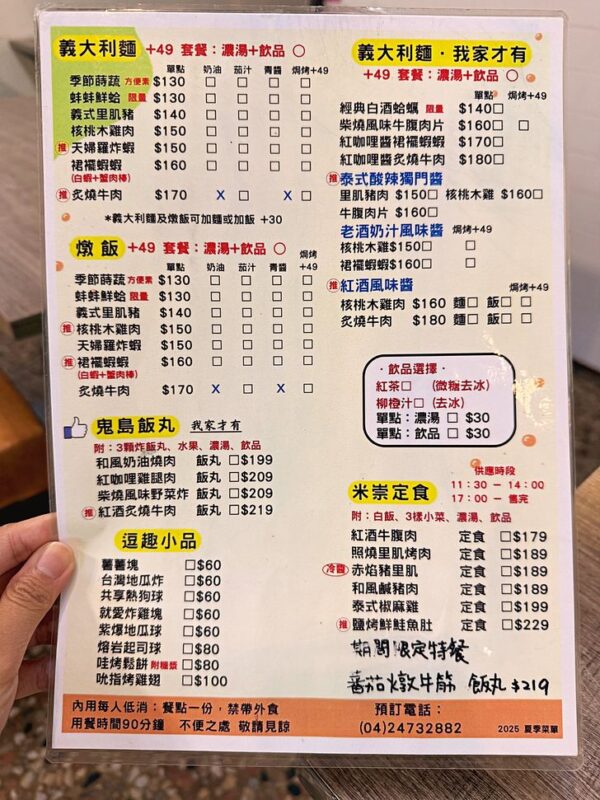 義大利麵 +49 套餐：濃湯+飲品 ○
單點 奶油 茄汁 青醬 焗烤+49
季節蒔蔬 方便素 $130 □ □ □ □
蚌蚌鮮蛤 限量 $130 □ □ □ □
義式里肌豬 $140 □ □ □ □
核桃木雞肉 $150 □ □ □ □
推 天婦羅炸蝦 $150 □ □ □ □
裙襬蝦蝦 $160 □ □ □ □
(白蝦+蟹肉棒)
推 炙燒牛肉 $170 X □ X □
*義大利麵及燉飯可加麵或加飯 +30
燉飯 +49 套餐：濃湯+飲品 ○
單點 奶油 茄汁 青醬 焗烤+49
季節蒔蔬 方便素 $130 □ □ □ □
蚌蚌鮮蛤 限量 $130 □ □ □ □
義式里肌豬 $140 □ □ □ □
推 核桃木雞肉 $150 □ □ □ □
天婦羅炸蝦 $150 □ □ □ □
推 裙襬蝦蝦 $160 □ □ □ □
(白蝦+蟹肉棒)
炙燒牛肉 $170 X □ X □
鬼島飯丸 我家才有
附：3顆炸飯丸、水果、濃湯、飲品
和風奶油燒肉 飯丸 □$199
紅咖哩雞腿肉 飯丸 □$209
柴燒風味野菜炸 飯丸 □$209
推 紅酒炙燒牛肉 飯丸 □$219
逗趣小品
薯薯塊 □$60
台灣地瓜炸 □$60
共享熱狗球 □$60
就愛炸雞塊 □$60
紫爆地瓜球 □$60
熔岩起司球 □$80
哇烤鬆餅 附楓漿 □$80
吮指烤雞翅 □$100
義大利麵．我家才有
+49 套餐：濃湯+飲品 ○
單點 焗烤+49
經典白酒蛤蠣 限量 $140□
柴燒風味牛腹肉片 $160□ □
紅咖哩醬裙襬蝦蝦 $170□
紅咖哩醬炙燒牛肉 $180□
推 泰式酸辣獨門醬
里肌豬肉 $150□ 核桃木雞 $160□
牛腹肉片 $160□
老酒奶汁風味醬 焗烤+49
核桃木雞$150□ □
裙襬蝦蝦$160□ □
推 紅酒風味醬 焗烤+49
核桃木雞肉 $160 麵□ 飯□ □
炙燒牛肉 $180 麵□ 飯□ □
．飲品選擇．
紅茶□ (微糖去冰)
柳橙汁□ (去冰)
單點：濃湯 □ $30
單點：飲品 □ $30
米崇定食
供應時段
11:30 - 14:00
17:00 - 售完
附：白飯、3樣小菜、濃湯、飲品
紅酒牛腹肉 定食 □$179
照燒里肌烤肉 定食 □$189
冷醬 赤焰豬里肌 定食 □$189
和風鹹豬肉 定食 □$189
泰式椒麻雞 定食 □$199
推 鹽烤鮮鮭魚肚 定食 □$229
期間限定特餐
蕃茄燉牛筋 飯丸 $219
內用每人低消：餐點一份，禁帶外食
用餐時間90分鐘 不便之處 敬請見諒
預訂電話：
(04)24732882
2025 夏季菜單